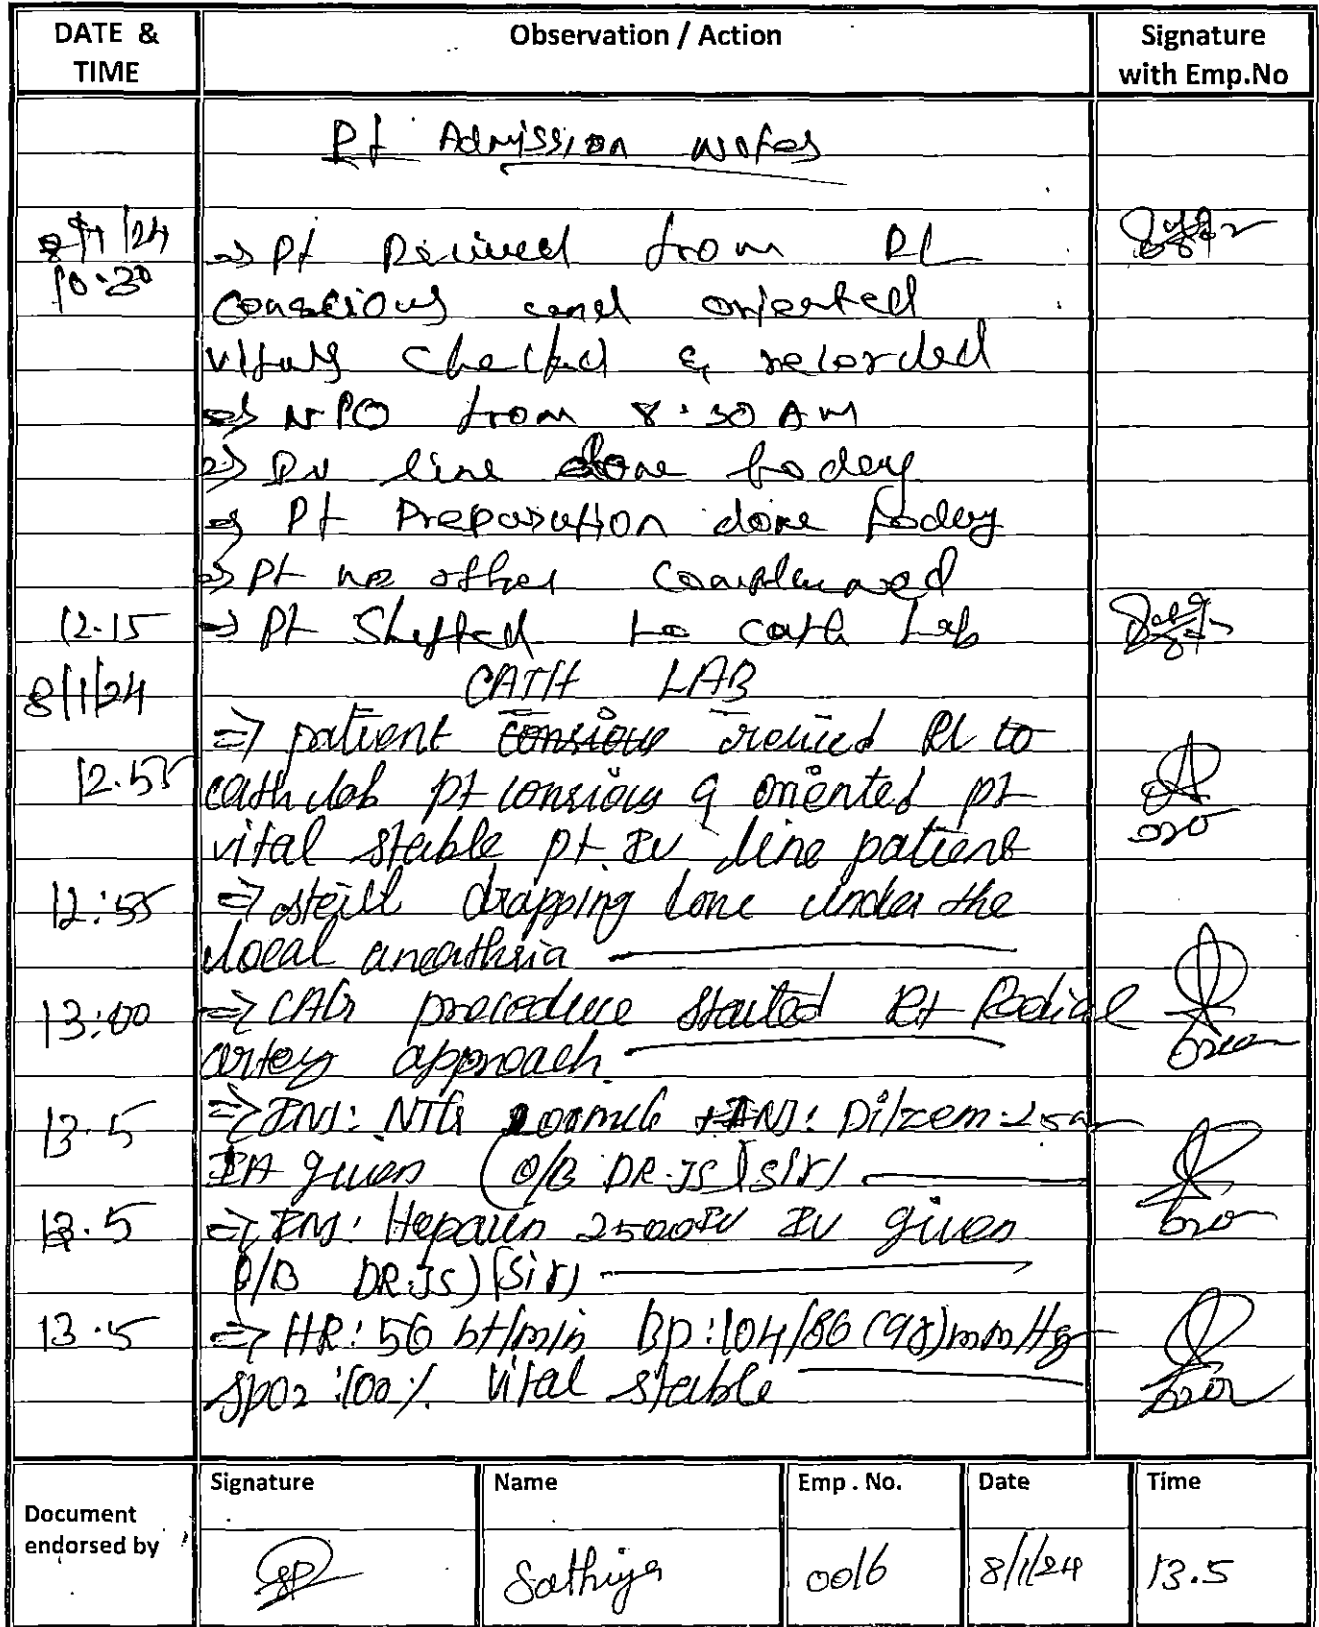 DATE & TIME
Observation / Action
Signature with Emp.No
Pt Admission notes
8/1/24
10.30
=> Pt Recived from RL
Conscious and oriented
vitals checked & recorded
=> NPO from 8.30 AM
=> IV line done today
=> Pt Preparation done today
=> Pt no other
12.15
=> Pt Shifted to cath Lab
8/1/24
CATH LAB
=> patient consious recived RL to
12.55
cath lab pt consious & oriented pt
vital stable pt. IV line patient
12:55
=> drapping done under the
local
13:00
=> CAG procedure started Rt Radial
artery approach.
13.5
=> INJ: NTG 200mcg + INJ: Dilzem
IA given (O/B DR.JS)(sir)
13.5
=> INJ: Heparin 2500IU IV given
O/B DR.JS)(Sir)
13.5
=> HR: 56 bt/min BP:104/86(98)mm/Hg
SPO2:100%. vital stable
Document endorsed by
Signature
Name
Emp . No.
Date
Time
Sathiya
0016
8/1/24
13.5